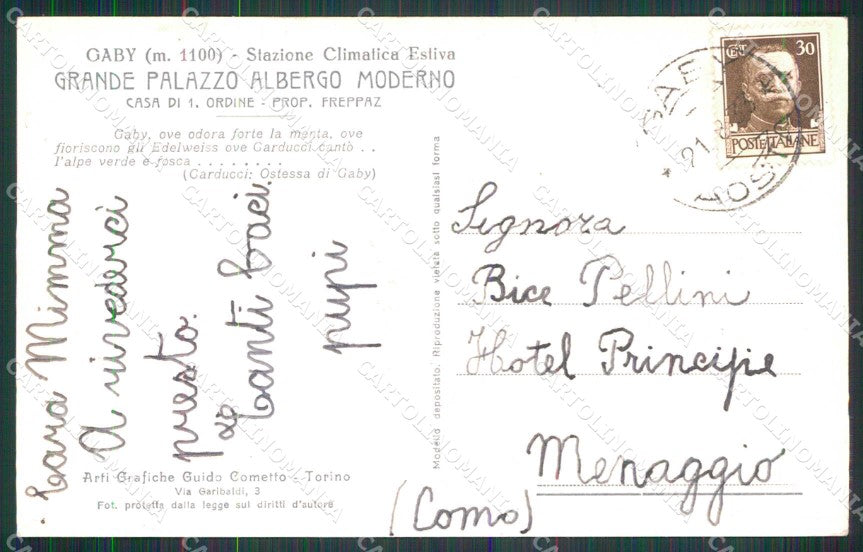 GABY (m. 1100) - Stazione Climatica Estiva
GRANDE PALAZZO ALBERGO MODERNO
CASA DI 1. ORDINE - PROP. FREPPAZ
Gaby, ove odora forte la menta, ove
fioriscono gli Edelweiss ove Carducci cantò . .
l'alpe verde e fosca . . . . . . . . .
(Carducci: Ostessa di Gaby)
Cara Mimma
A rivederci
presto.
tanti baci.
pupi
Arti Grafiche Guido Cometto - Torino
Via Garibaldi, 3
Fot. protetta dalla legge sul diritti d'autore
Modello depositato. Riproduzione vietata sotto qualsiasi forma
CENT. 30
POSTE ITALIANE
GABY
AOSTA
Signora
Bice Pellini
Hotel Principe
Menaggio
(Como)
CARTOLINOMANIA